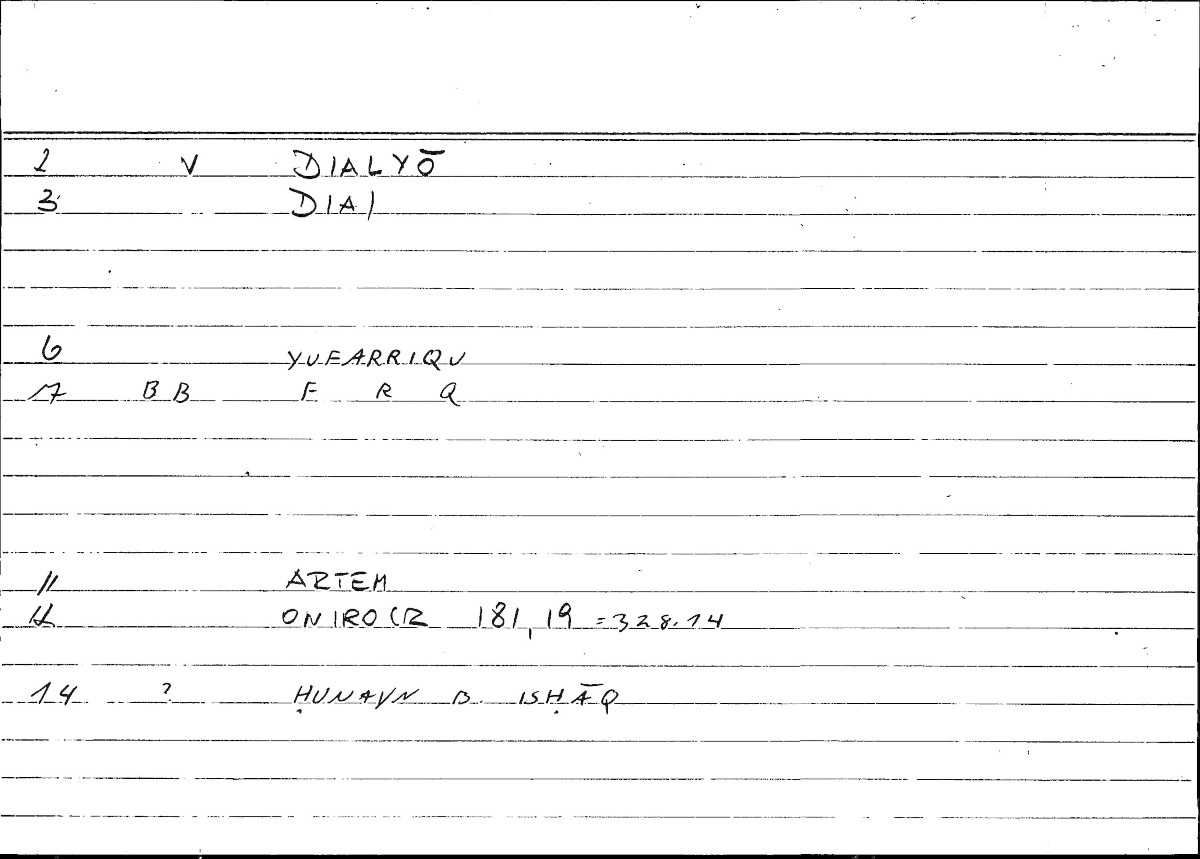 2 V DIALYŌ
3 DIA|
6 YUFARRIQU
17 BB F R Q
11 ARTEM
12 ONIROCR 181,19 =328.14
14 ? ḤUNAYN B. ISḤĀQ